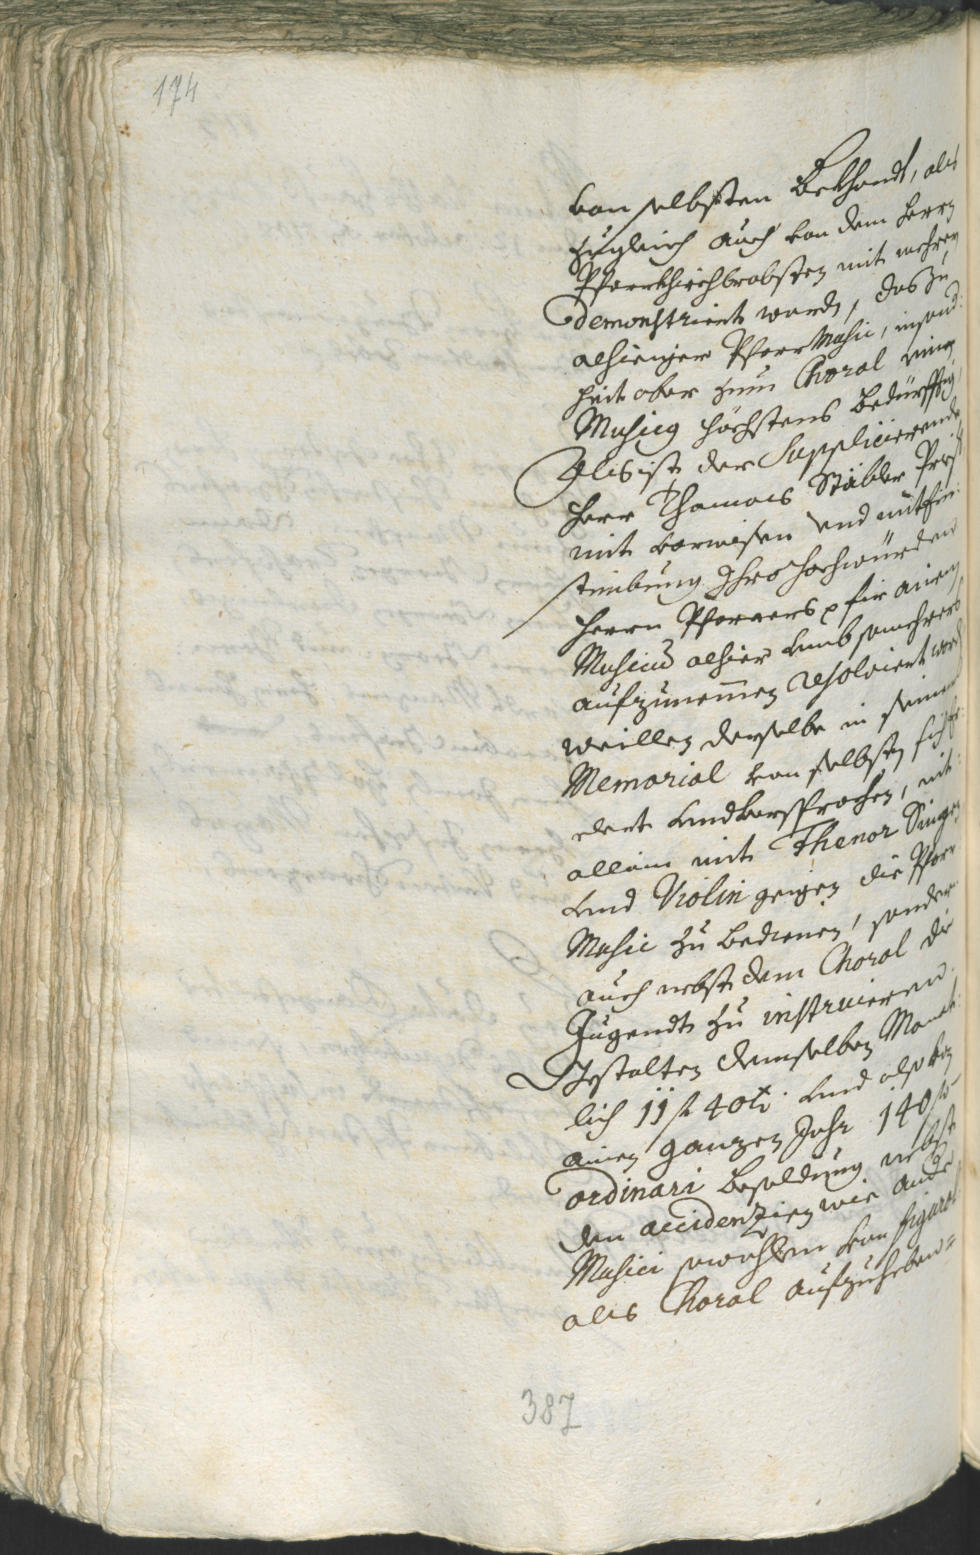 174
von selbsten Bekhandt, als
Zugleich auch von dem herrn
Pfarrkhirchbrobsten mit mehrern
demonstriert wardt, das zu
alhieiger Pfarr Music, insond:
heit aber zum Choral einen
Musicg höchstens bedürfftig,
Alß ist der Supplicierende
Herr Thomas Stäbler
mit vorwissen und mitein
stimbung Ihro hochwürden
Herrn Pfarrers p für ainen
Musicum alhier umb somehrers
aufzunemmen resolviert word
weillen derselbe in seinem
Memorial von selbsten sich
und versprochen, nit
allein mit Thenor Singen
und Violin geigen die Pfarr
Music zu bedienen, sonder
auch nebst dem Choral die
Jugendt zu instruieren
Gstalten demselben Monat:
lich 11 f 40 kr und also von
ainen ganzen Jahr 140 f
ordinari besoldtung nebst
den accidenzien wie andere
Musici sowohlen von figural
als Choral aufzuheben=
387